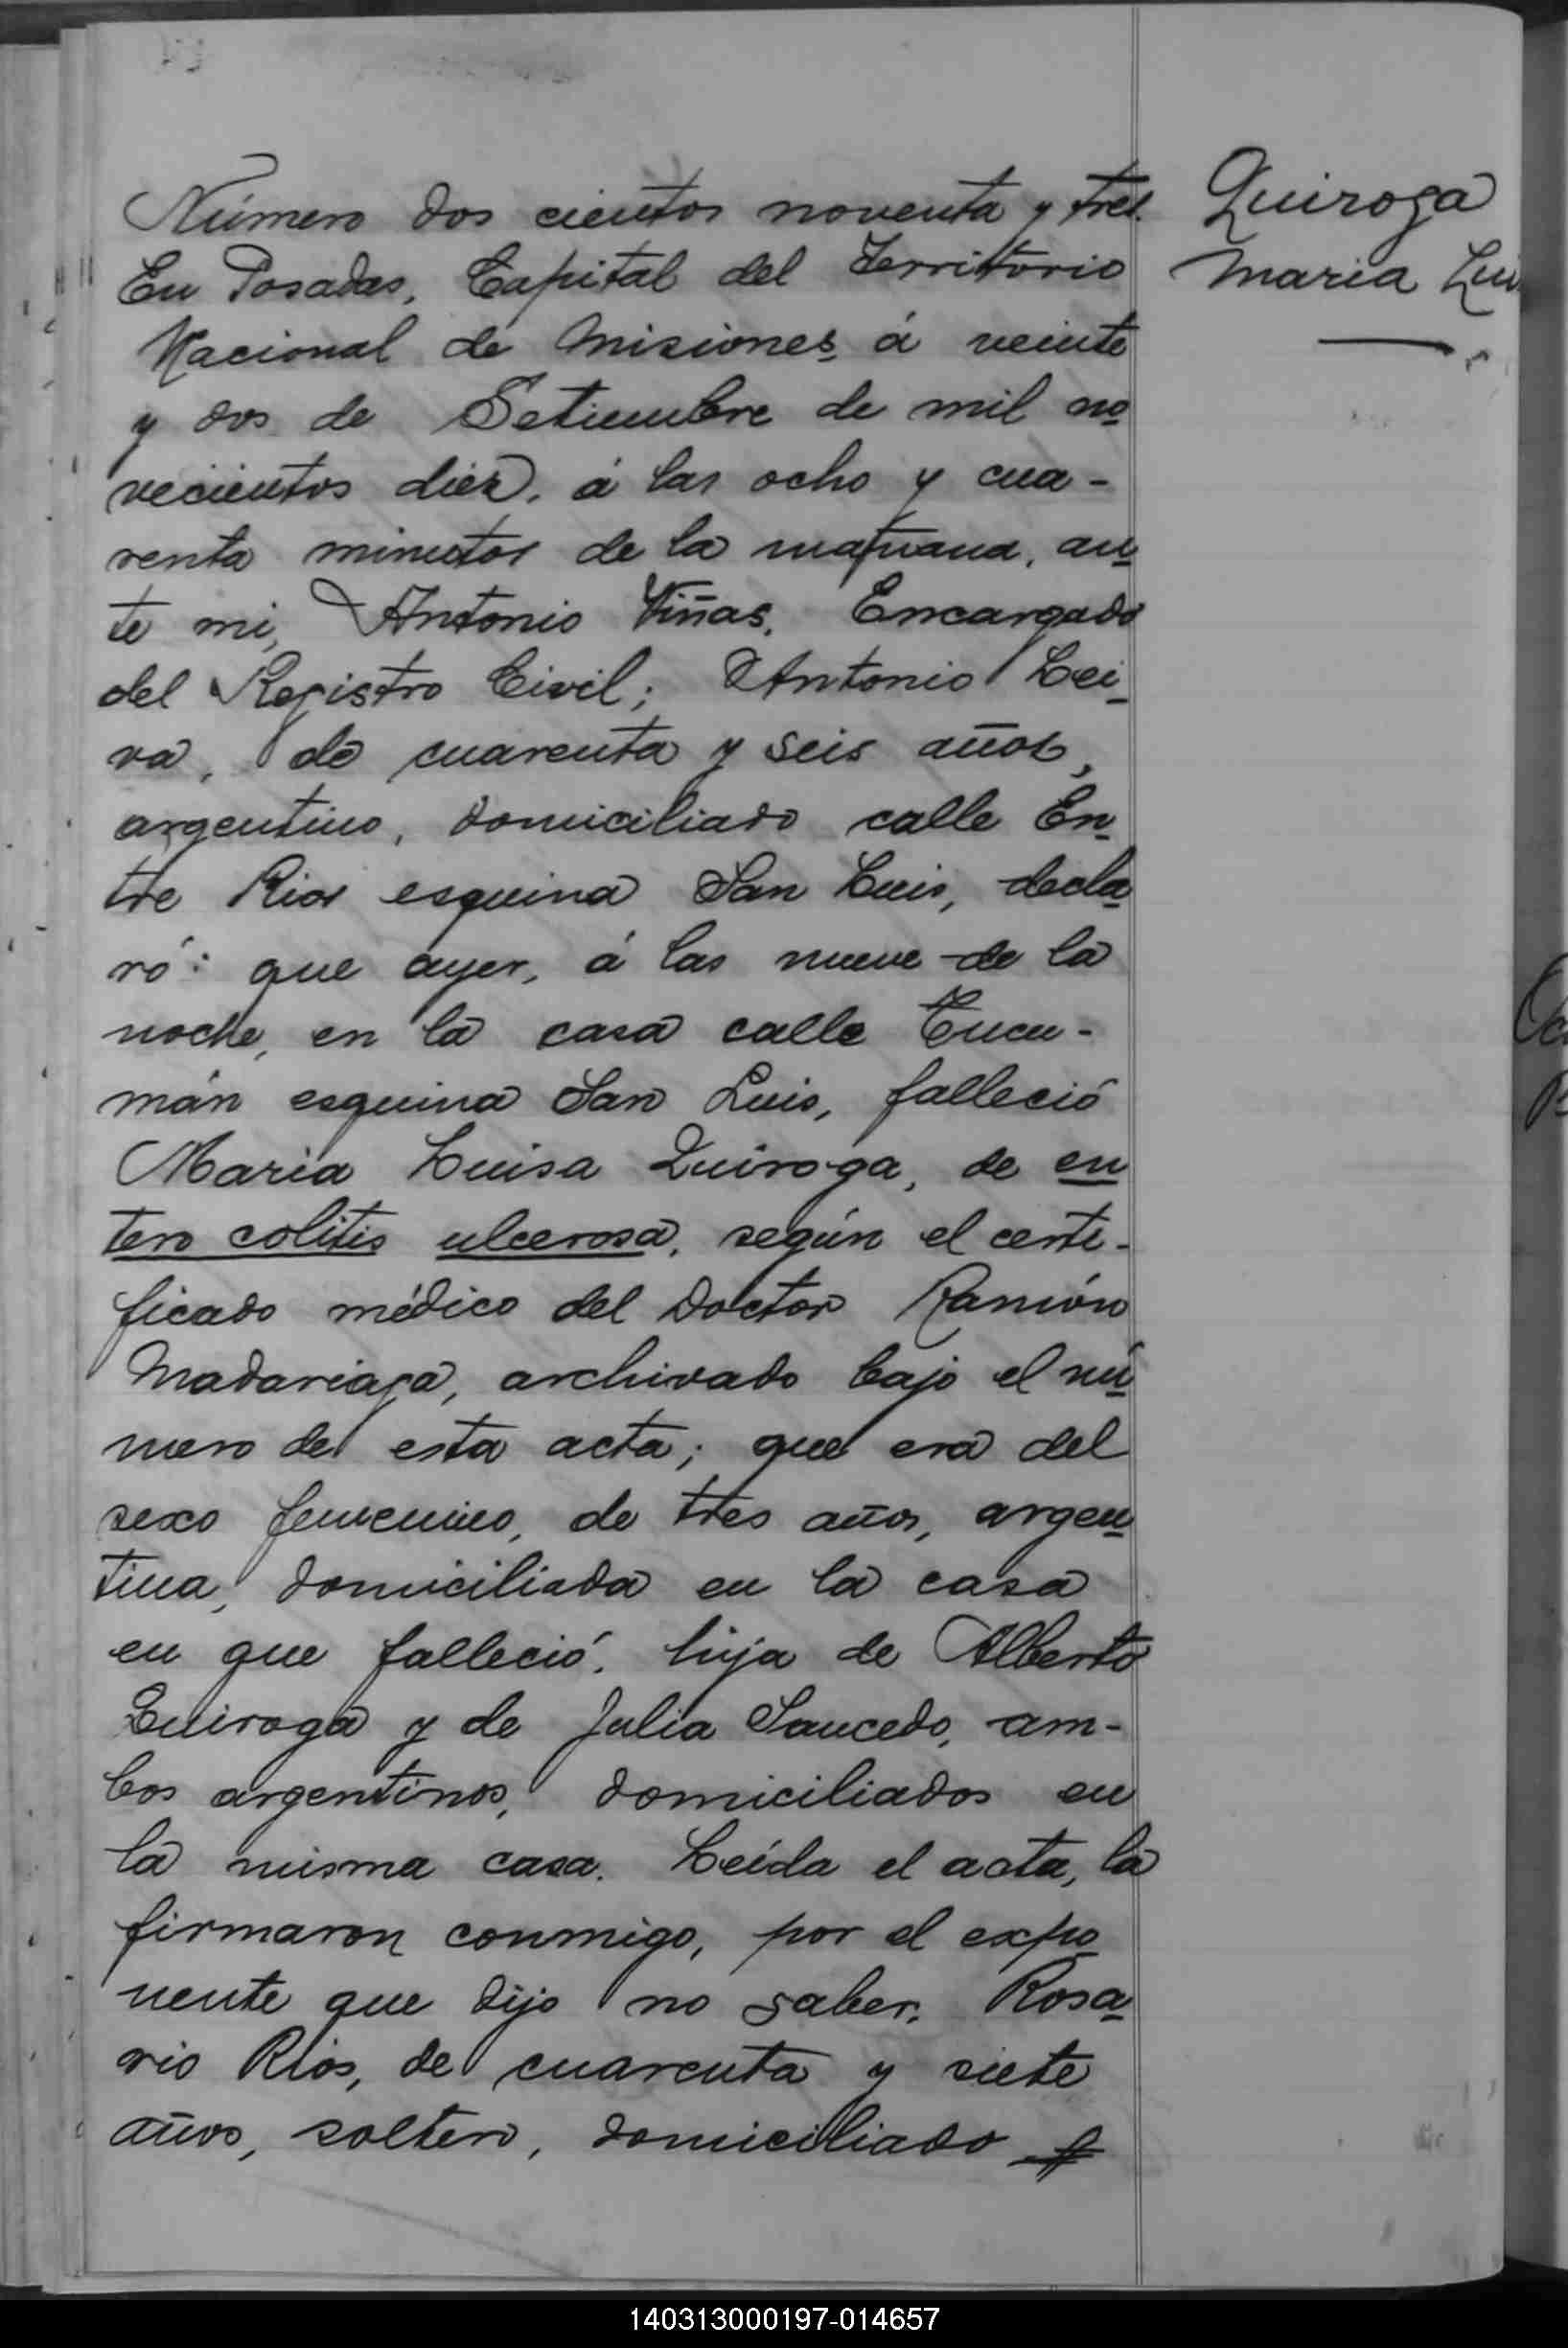 Número dos cientos noventa y tres.
En Posadas, Capital del Territorio
Nacional de Misiones, á veinte
y dos de Setiembre de mil no
vecientos diez, á las ocho y cua-
renta minutos de la mañana, an
te mi, Antonio Viñas, Encargado
del Registro Civil; Antonio Lei
va, de cuarenta y seis años,
argentino, domiciliado calle En
tre Rios esquina San Luis, decla
ró: que ayer, á las nueve de la
noche, en la casa calle Tucu-
mán esquina San Luis, falleció
Maria Luisa Quiroga, de en
tero colitis ulcerosa, según el certi-
ficado médico del Doctor Ramón
Madariaga, archivado bajo el nú
mero de esta acta; que era del
sexo femenino, de tres años, argen
tina, domiciliada en la casa
en que falleció, hija de Alberto
Quiroga y de Julia Saucedo, am-
bos argentinos, domiciliados en
la misma casa. Leída el acta, la
firmaron conmigo, por el expo
nente que dijo no saber, Rosa
rio Rios, de cuarenta y siete
años, soltero, domiciliado
Quiroga
Maria Lui
140313000197-014657